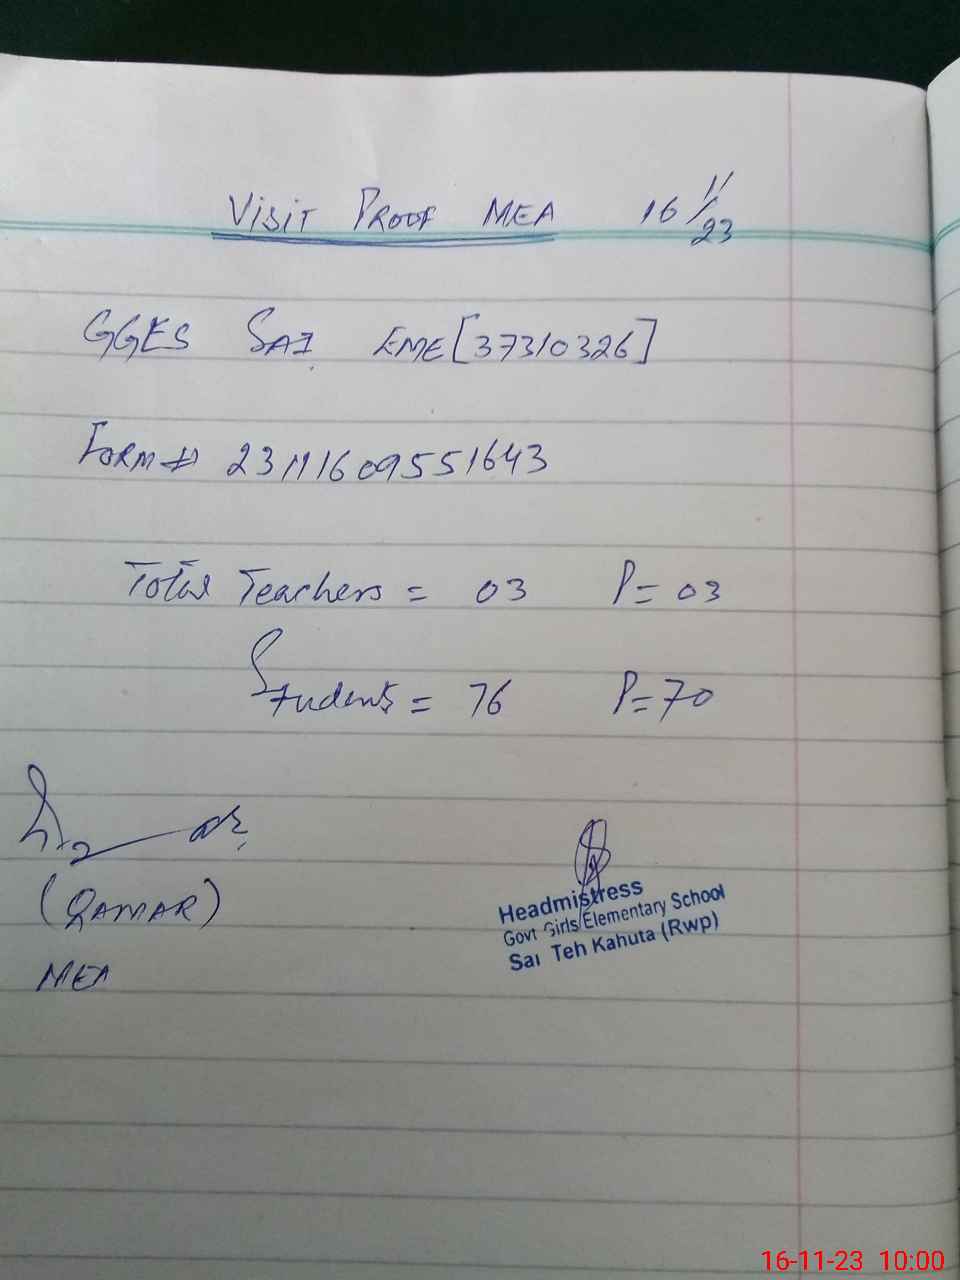 VISIT PROOF MEA 16/11/23
GGES SAI EME[37310326]
FORM# 23111609551643
Total Teachers = 03 P= 03
Students = 76 P= 70
(QAMAR)
MEA
Headmistress
Govt Girls Elementary School
Sai Teh Kahuta (Rwp)
16-11-23 10:00